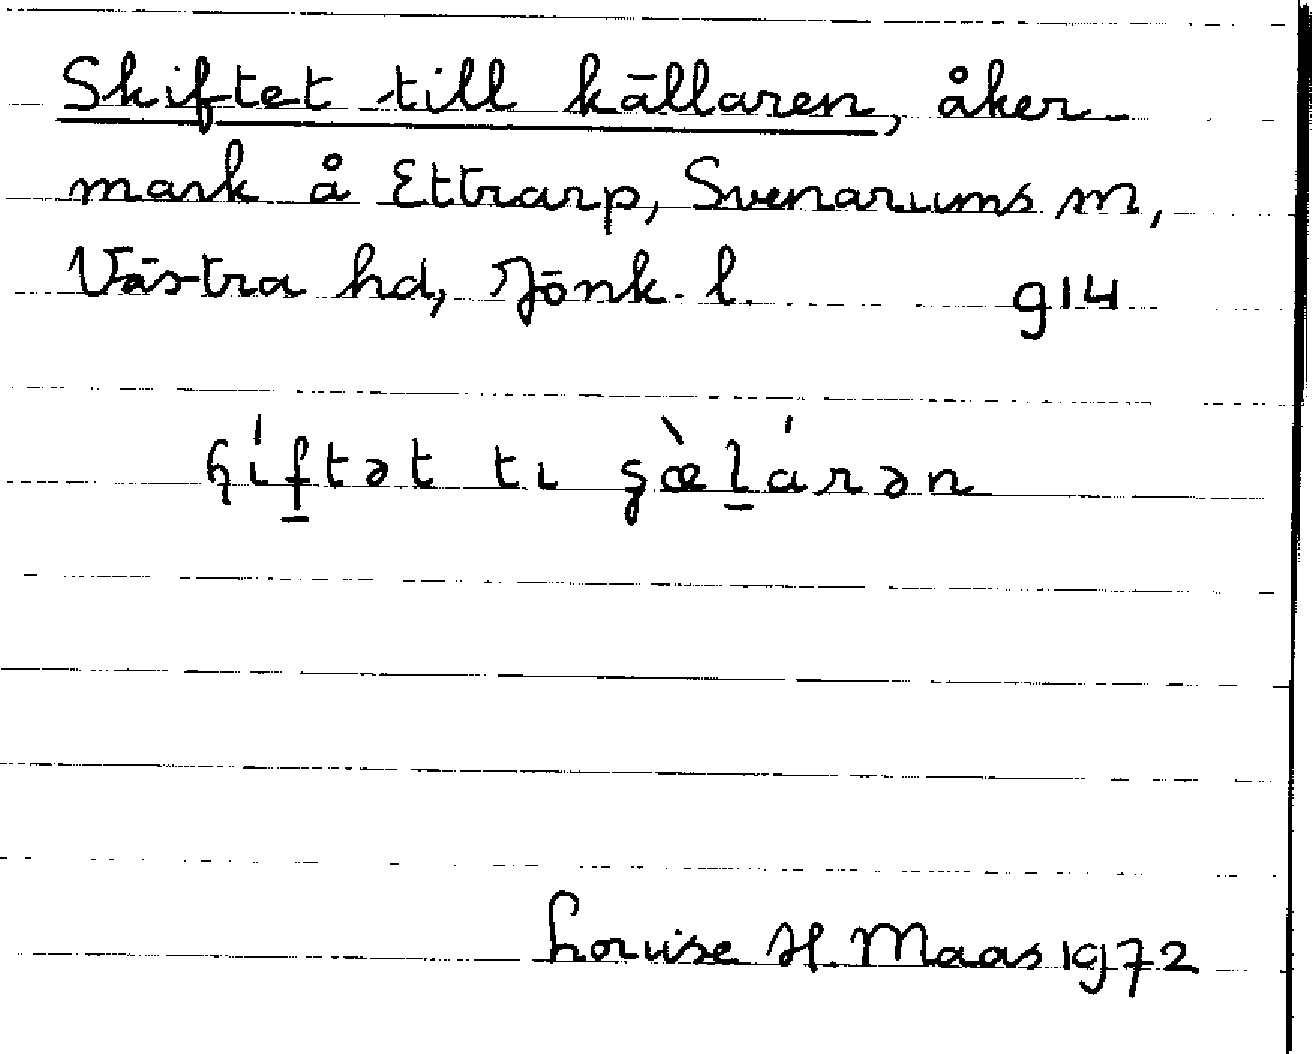 Skiftet till källaren, åker-
mark å Ettrarp, Svenarums sn,
Västra hd, Jönk. l. 914
ɧíf̲tət tı ʂœ̀l̲árən
Louise H. Maas 1972